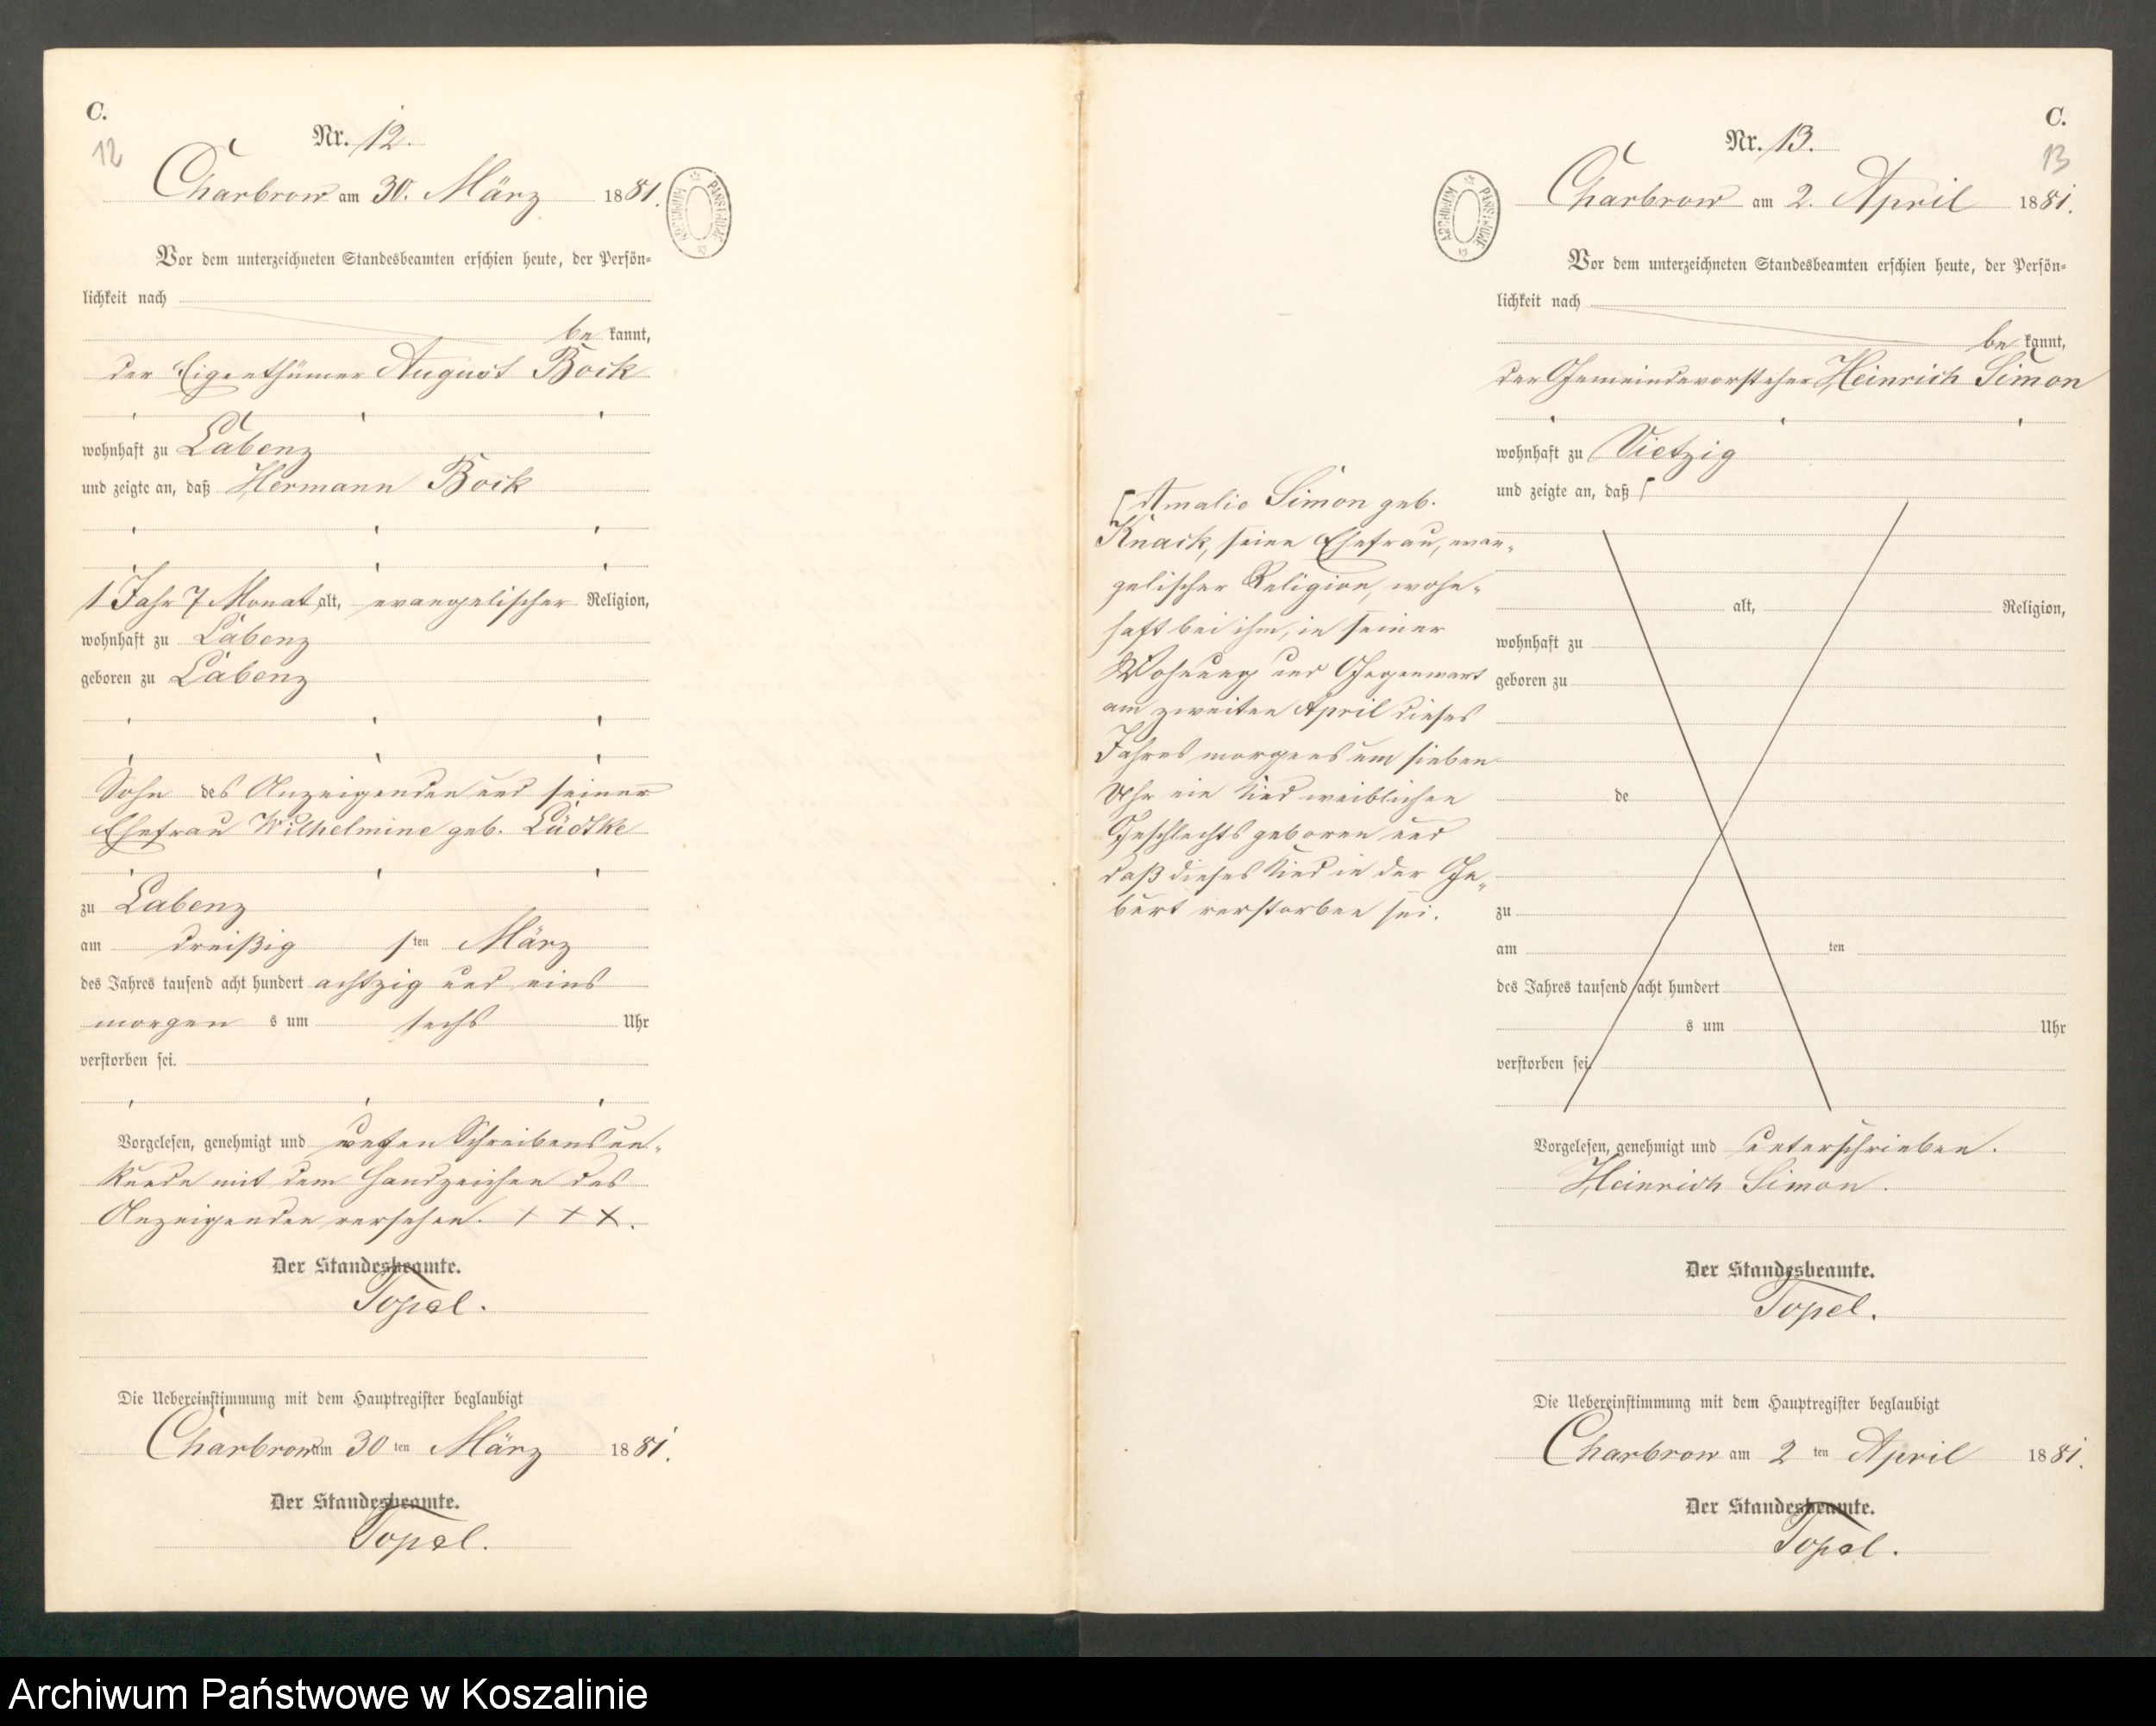 C.
12
Nr. 12.
Charbrow am 30. März 1881.
ARCHIWUM PAŃSTWOWE
Vor dem unterzeichneten Standesbeamten erschien heute, der Persön-
lichkeit nach
be kannt,
der Eigenthümer August Bock
wohnhaft zu Labenz
und zeigte an, daß Hermann Bock
1 Jahr 7 Monat alt, evangelischer Religion,
wohnhaft zu Labenz
geboren zu Labenz
Sohn des Anzeigenden und seiner
Ehefrau Wilhelmine geb. Lüdtke
zu Labenz
am dreißig sten März
des Jahres tausend acht hundert achtzig und eins
morgen s um sechs Uhr
verstorben sei.
Vorgelesen, genehmigt und wegen Schreibensun-
kunde mit dem Handzeichen des
Anzeigenden versehen. + + +.
Der Standesbeamte.
Topel.
Die Uebereinstimmung mit dem Hauptregister beglaubigt
Charbrow am 30 ten März 1881.
Der Standesbeamte.
Topel.
C.
13
Nr. 13.
Charbrow am 2. April 1881.
ARCHIWUM PAŃSTWOWE
Vor dem unterzeichneten Standesbeamten erschien heute, der Persön-
lichkeit nach
be kannt,
der Gemeindevorsteher Heinrich Simon
wohnhaft zu Vietzig
und zeigte an, daß ſ
ſ Amalie Simon geb.
Knack, seine Ehefrau, evan-
gelischer Religion, wohn-
haft bei ihm, in seiner
Wohnung und Gegenwart
am zweiten April dieses
Jahres morgens um sieben
Uhr ein Kind weiblichen
Geschlechts geboren und
daß dieses Kind in der Ge-
burt verstorben sei.
alt, Religion,
wohnhaft zu
geboren zu
de
zu
am ten
des Jahres tausend acht hundert
s um Uhr
verstorben sei.
Vorgelesen, genehmigt und unterschrieben.
Heinrich Simon.
Der Standesbeamte.
Topel.
Die Uebereinstimmung mit dem Hauptregister beglaubigt
Charbrow am 2 ten April 1881.
Der Standesbeamte.
Topel.
Archiwum Państwowe w Koszalinie